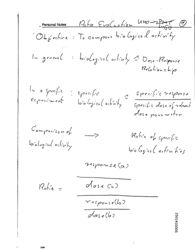 Personal Notes
Ratio Evaluation
Objective : To compare biological activity
In general : biological activity ⇐ Dose-Response
Relationships
In a specific : specific ⇐ specific response
experiment biological activity specific dose of relevant
dose parameter
Comparison of → Ratio of specific
biological activity biological activities
response(a)
dose(a)
Ratio =
response(b)
dose(b)